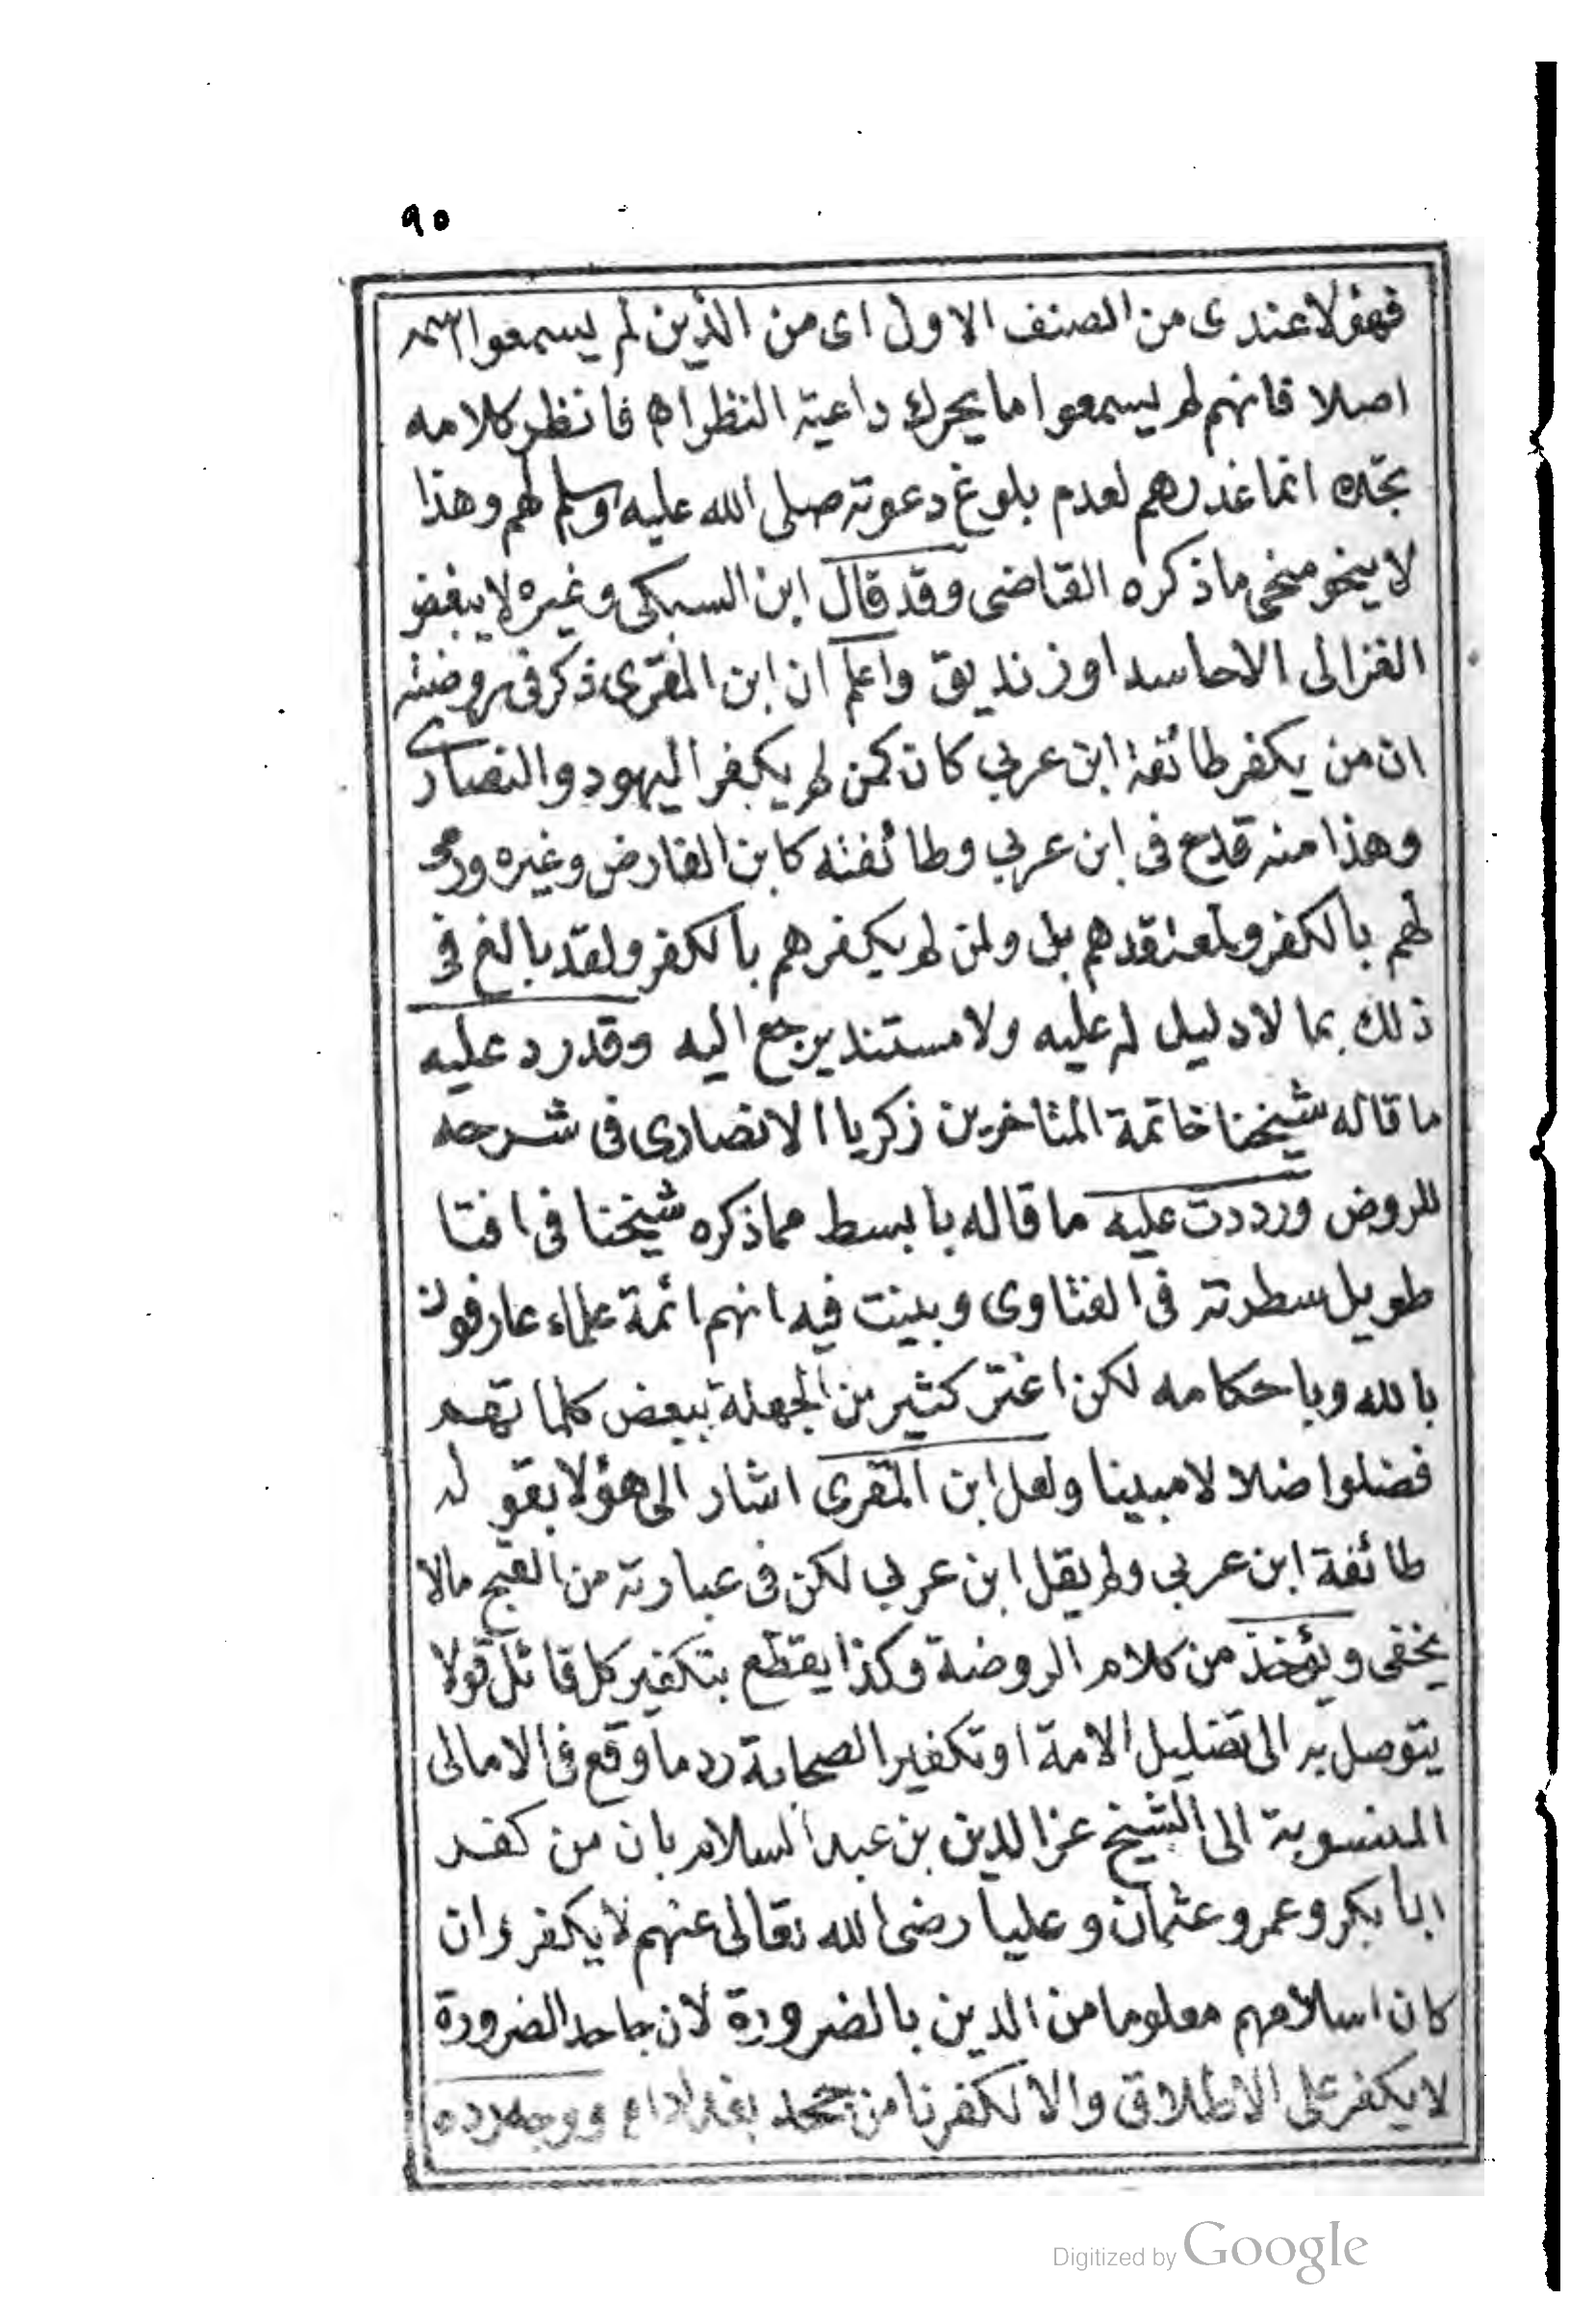 ٩٥
فهؤلا عندى من الصنف الاول اى من الذين لم يسمعوا اسمه
اصلا فانهم لم يسمعوا ما يحرك داعية النظر اه فانظر كلامه
تجده انما عذرهم لعدم بلوغ دعوته صلى الله عليه وسلم لهم وهذا
لا ينحو منحى ما ذكره القاضى وقد قال ابن السبكى وغيره لا يبغض
الغزالى الا حاسد او زنديق واعلم ان ابن المقرى ذكر فى روضته
ان من يكفر طائفة ابن عربي كان كمن لم يكفر اليهود والنصارى
وهذا منه قدح فى ابن عربي وطائفته كابن الفارض وغيره
لهم بالكفر ولمعتقدهم بل ولمن لم يكفرهم بالكفر ولقد بالغ فى
ذلك بما لا دليل له عليه ولا مستند يرجع اليه وقد رد عليه
ما قاله شيخنا خاتمة المتاخرين زكريا الانصارى فى شرحه
للروض ورددت عليه ما قاله بابسط مما ذكره شيخنا فى افتا
طويل سطرته فى الفتاوى وبينت فيه انهم ائمة علماء عارفون
بالله وباحكامه لكن اغتر كثير من الجهلة ببعض كلماتهم
فضلوا ضلالا مبينا ولعل ابن المقرى اشار الى هؤلا بقوله
طائفة ابن عربي ولم يقل ابن عربي لكن فى عبارته من القبح مالا
يخفى ويؤخذ من كلام الروضة وكذا يقطع بتكفير كل قائل قولا
يتوصل به الى تضليل الامة او تكفير الصحابة رد ما وقع فى الامالى
المنسوبة الى الشيخ عز الدين بن عبد السلام بان من كفر
ابا بكر وعمر وعثمان وعليا رضى الله تعالى عنهم لا يكفر وان
كان اسلامهم معلوما من الدين بالضرورة لان جاحد الضرورة
لا يكفر على الاطلاق والا لكفرنا من جحد بغداد اه ووجه رده
Digitized by Google